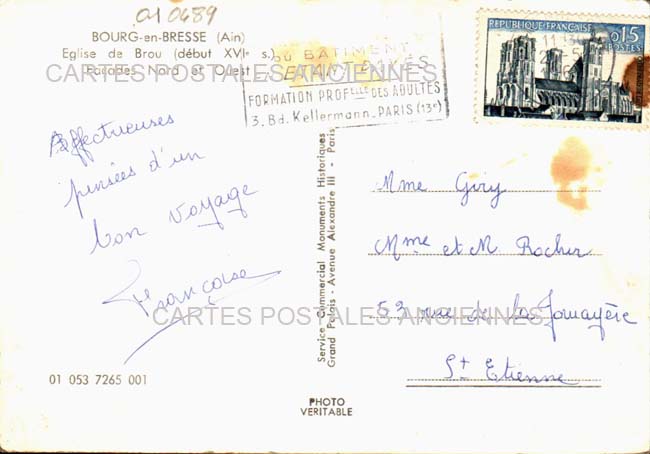 01 0689
BOURG-en-BRESSE (Ain)
Eglise de Brou (début XVIe s.)
Façades Nord et Ouest
CARTES POSTALES ANCIENNES
DU BATIMENT
FORMATION PROFelle DES ADULTES
3. Bd. Kellermann - PARIS (13e)
REPUBLIQUE FRANÇAISE
0,15
POSTES
Affectueuses
pensées d'un
bon voyage
Françoise
Service Commercial Monuments Historiques
Grand Palais - Avenue Alexandre III - Paris
Mme Giry
Mme et M. Rocher
53 rue de la Jomayère
St Etienne
CARTES POSTALES ANCIENNES
01 053 7265 001
PHOTO
VERITABLE